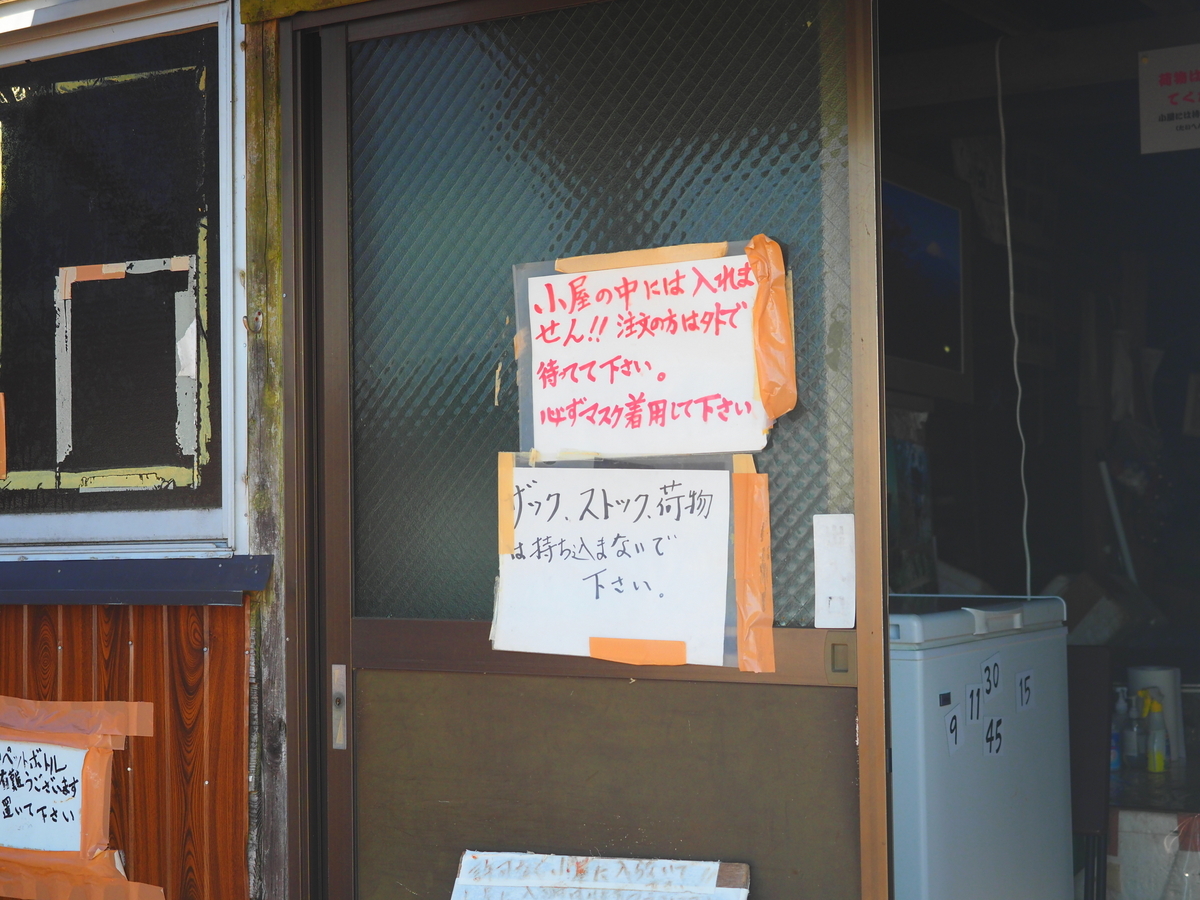 小屋の中には入れま
せん!! 注文の方は外で
待ってて下さい。
必ずマスク着用して下さい
ザック、ストック、荷物
は持ち込まないで
下さい。
ペットボトル
有難うございます
置いて下さい
許可なく小屋に入らないで
9
11
30
45
15